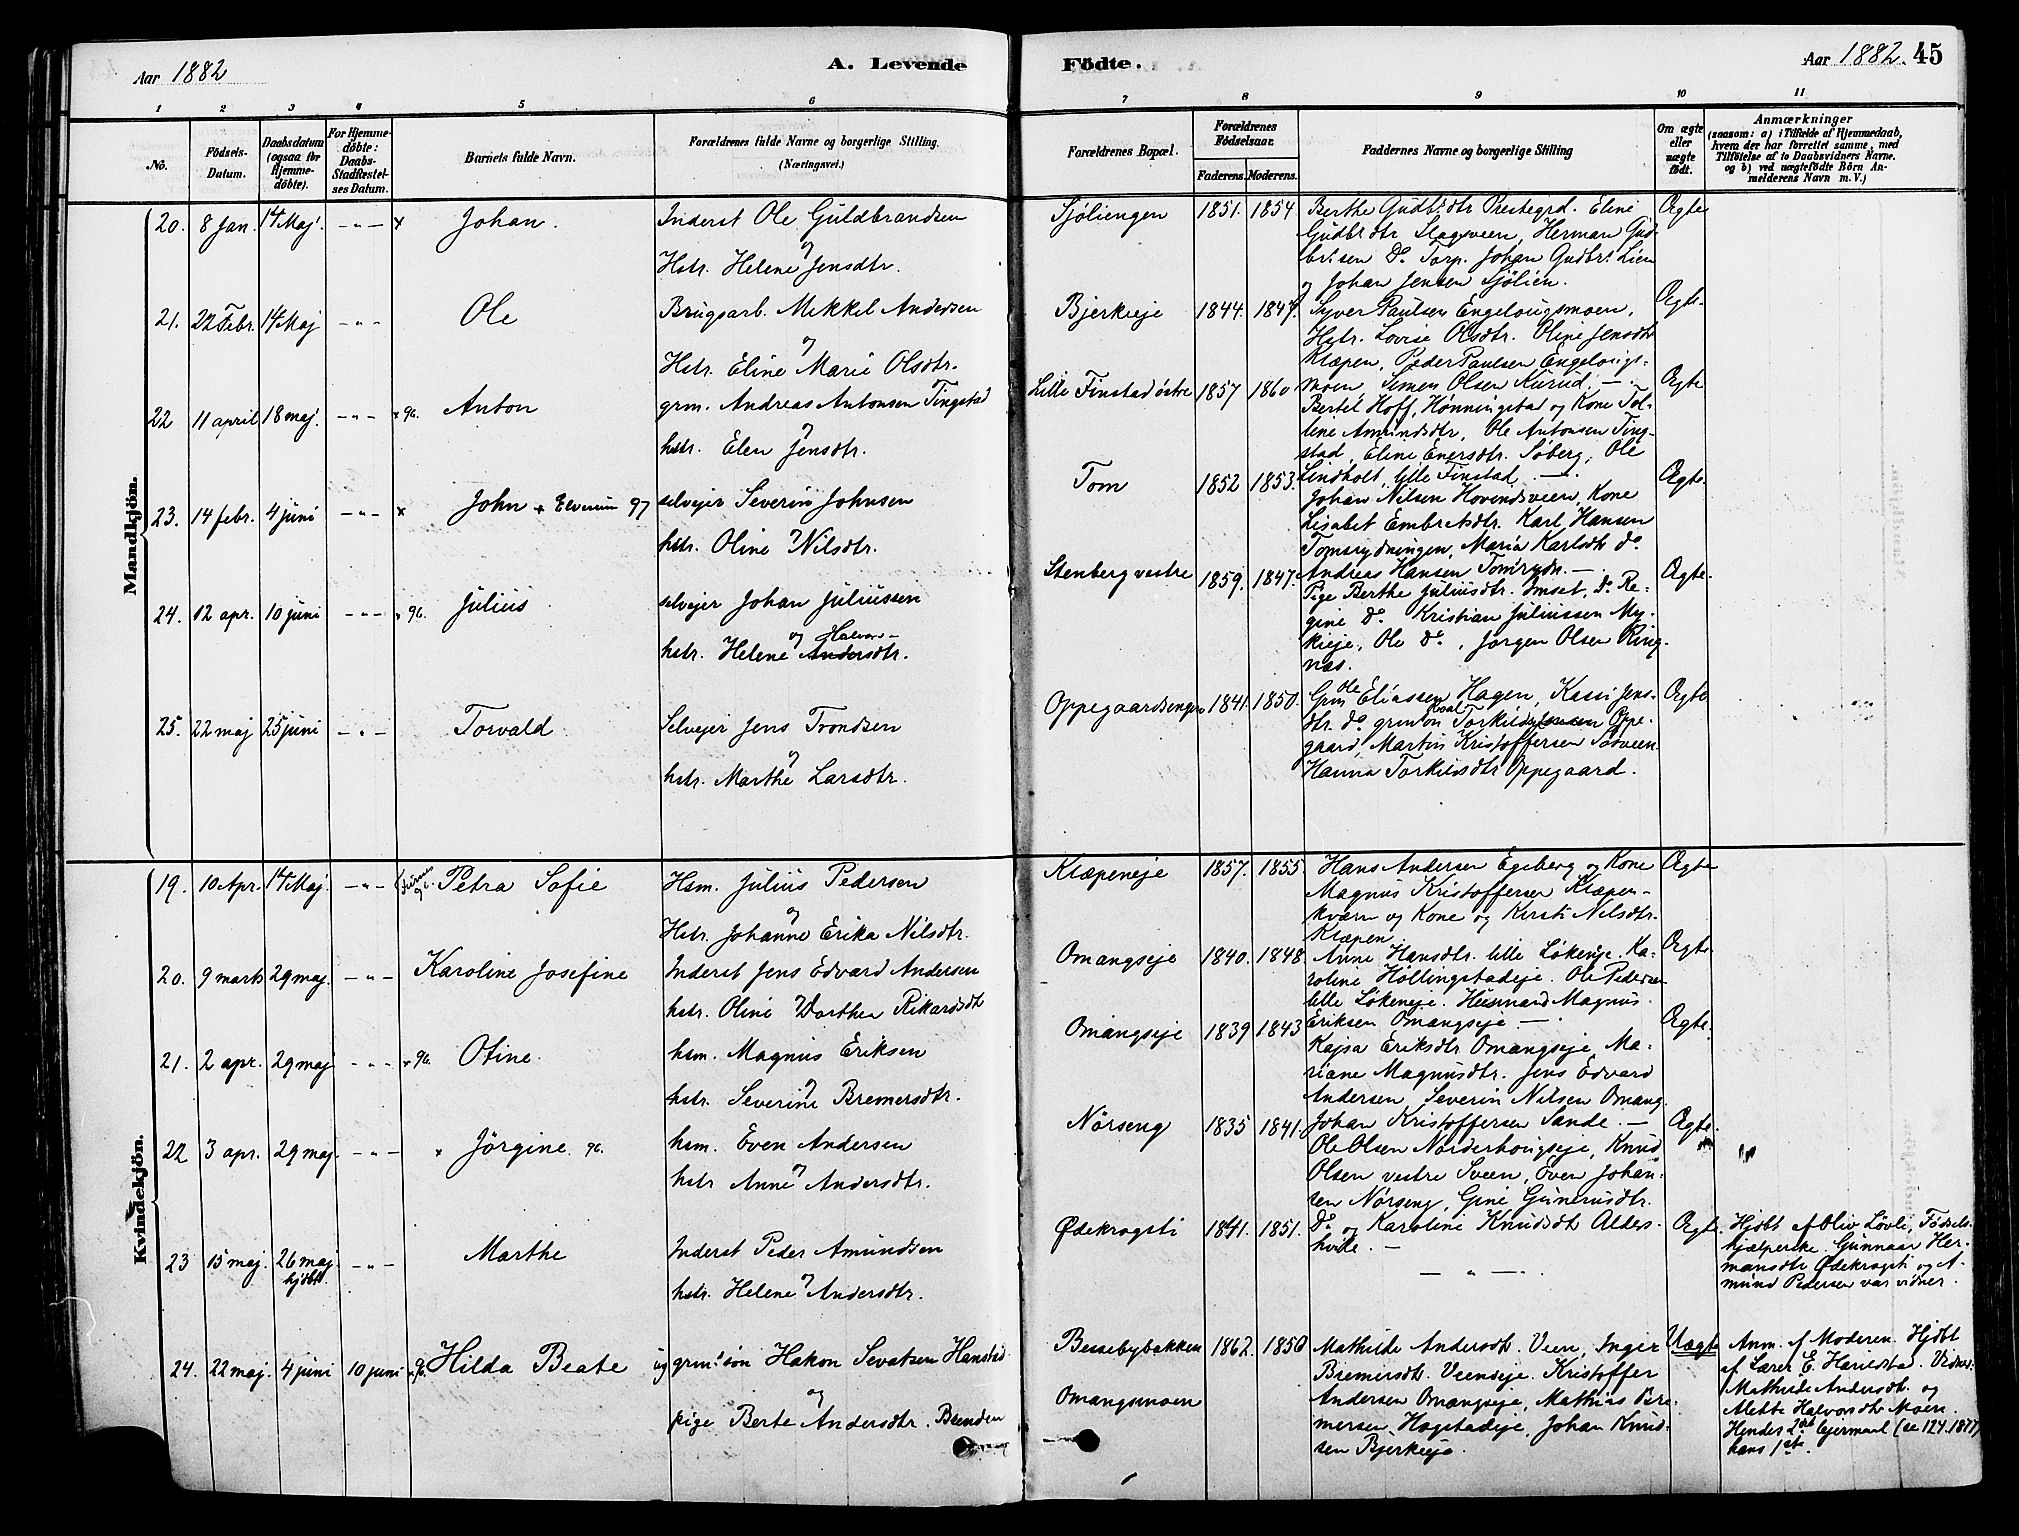 Aar 1882
A. Levende
Födte.
Aar 1882. 45
1 2 3 4 5 6 7 8 9 10 11
No.
Födsels-
Datum.
Daabsdatum
(ogsaa for
Hjemme-
döbte).
For Hjemme-
döbte:
Daabs-
Stadfæstel-
ses Datum.
Barnets fulde Navn.
Forældrenes fulde Navne og borgerlige Stilling.
(Næringsvei.)
Forældrenes Bopæl.
Forældrenes
Födselsaar.
Faderens. Moderens.
Faddernes Navne og borgerlige Stilling
Om ægte
eller
uægte
födt.
Anmærkninger
(saasom: a) i Tilfælde af Hjemmedaab,
hvem der har forrettet samme, med
Tilföielse af to Daabsvidners Navne.
og b) ved uægtefödte Börn An-
melderens Navn m. V.)
Mandkjön.
20. 8 Jan. 14 Maj. - " - x Johan.
Inderst Ole Guldbrandsen
og
Hstr. Helene Jensdtr.
Sjøliengen 1851. 1854
Berthe Gudbrdtr Prestegrd. Eline
Gudbrdtr Slagsveen, Herman Gud-
brsen Do Torp. Johan Gudbrs Lien
og Johan Jensen Sjölien.
Ægte
21. 22 Febr. 14 Maj - " - Ole
Brugsarb. Mikkel Andersen
og
Hstr. Eline Marie Olsdtr.
Bjerkieje 1844. 1847.
Syver Paulsen Engelougsmoen,
Hstr. Lovise Olsdtr. Oline Jensdtr
Klæpen, Peder Paulsen Engelougs-
moen, Simen Olsen Kurud. -
Ægte.
22 11 april 18 maj. - " - x 96. Anton
grm. Andreas Antonsen Tingstad
og
hstr. Elen Jensdtr.
Lille Finstad östre 1857 1860
Bertel Hoff, Hönningstad og Kone
Amundsdtr, Ole Antonsen Ting-
stad, Eline Enersdtr. Söberg, Ole
Lindholt, lille Finstad. -
Ægte
23. 14 febr. 4 juni - " - x John + Elverum 97
selvejer Severin Johnsen
og
hstr. Oline Nilsdtr.
Tom 1852 1853.
Johan Nilsen Hovindsveen, Kone
Lisabet Embretsdtr. Karl Hansen
Tomsrydningen, Maria Karlsdtr do
Andreas Hansen Tomrydn. -
Ægte.
24. 12 apr. 10 juni - " - x 96. Julius
selvejer Johan Juliussen
og Halvor-
hstr. Helene Andersdtr.
Stenberg vestre 1859. 1847.
Pige Berthe Juliusdtr. Imset, Do Re-
gine Do Kristian Juliussen My-
kleje, Ole Do, Jørgen Olsen Ring-
næs.
Ægte.
25. 22 maj 25 juni - " - Torvald
Selvejer Jens Trondsen
og
hstr. Marthe Larsdtr.
Oppegaardsengen 1841. 1850.
Grm Ole Eliassen Hagen, Kassi Jens-
dtr. do, grmkon Torkildsen Oppe-
gaard, Martin Kristoffersen Södveen
Hanna Torkildsdtr Oppegaard.
Ægte
Kvindekjön.
19. 10 Apr. 14 Maj. - " - Petra Sofie
Hsm. Julius Pedersen
og
Hstr. Johanne Erika Nilsdtr.
Klæpeneje 1857. 1855.
Hans Andersen Egeberg og Kone
Magnus Kristoffersen Klæpen-
kværn og Kone og Kirsti Nilsdtr.
Klæpen.
Ægte
20. 9 marts 29 maj. - " - Karoline Josefine
Inderst Jens Edvard Andersen
hstr. Oline Dorthea Rikardsdtr
Omangseje 1840. 1848.
Anne Hansdtr. lille Lökeneje. Ka-
roline Höllingstadeje. Ole Pedersen
lille Lökeneje. Husmand Magnus
Eriksen Omangseje -
Ægte.
21. 2 apr. 29 maj - " - x 96. Otine.
hsm. Magnus Eriksen
og
hstr. Severine Bremersdtr.
Omangseje 1839 1843
Kajsa Eriksdtr Omangseje, Ma-
riane Magnusdtr. Jens Edvard
Andersen, Severin Nilsen Omang.
Johan Kristoffersen Sande. -
Ægte.
22 3 apr. 29 maj. - " - x Jörgine. 96.
hsm. Even Andersen
og
hstr Anne Andersdtr.
Nörseng 1835 1841.
Ole Olsen Nörderhougseje, Knud
Olsen vestre Sveen, Even Johan-
sen Nörseng, Gine Gunerusdtr.
Do og Karoline Knudsdtr Alders-
hvile. -
Ægte.
23 15 maj. 26 maj. hjdbt. - " - Marthe
Inderst Peder Amundsen
og
hstr. Helene Andersdtr.
Ødekragsti 1841. 1851.
- " -
Ægte.
Hjdbt af Oliv Lövli, Födsels-
hjælperske. Gunnaar Her-
mansdtr Ødekragsti og A-
mund Pedersen var vidner.
24. 22 maj. 4 juni 10 juni x 96. Hilda Beate
ug grmsön Hakon Sevatsen Hanstad
og
pige Berte Andersdtr. Brenden
Bessebybakken
Omangsmoen
1862. 1850
Mathilde Andersdt. Veen, Inger
Bremersdt. Veeneje. Kristoffer
Andersen Omangseje, Mathias Bre-
mersen, Hagstadeje, Johan Knud-
sen Bjerkeeje.
Uægte
Anm. af Moderen. Hjdbt
af Lærer E. Harildstad. Vidner:
Mathilde Andersdt. og
Alette Halvorsdtr Moen.
Hendes 2det lejermaal (se 127. 1877)
hans 1ste.